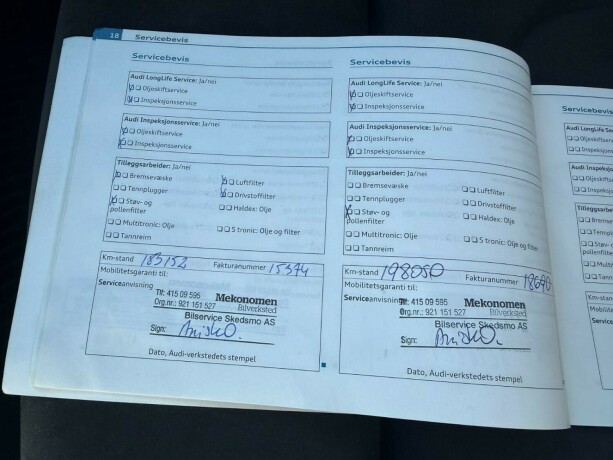 18 Servicebevis
Servicebevis
Audi LongLife Service: Ja/nei
Oljeskiftservice
Inspeksjonsservice
Audi Inspeksjonsservice: Ja/nei
Oljeskiftservice
Inspeksjonsservice
Tilleggsarbeider: Ja/nei
Bremsevæske
Luftfilter
Tennplugger
Drivstoffilter
Støv- og pollenfilter
Haldex: Olje
Multitronic: Olje
S tronic: Olje og filter
Tannreim
Km-stand 183152 Fakturanummer 15374
Mobilitetsgaranti til:
Serviceanvisning
Tlf: 415 09 595 Mekonomen
Org.nr.: 921 151 527 Bilverksted
Bilservice Skedsmo AS
Sign:
Dato, Audi-verkstedets stempel
Servicebevis
Audi LongLife Service: Ja/nei
Oljeskiftservice
Inspeksjonsservice
Audi Inspeksjonsservice: Ja/nei
Oljeskiftservice
Inspeksjonsservice
Tilleggsarbeider: Ja/nei
Bremsevæske
Luftfilter
Tennplugger
Drivstoffilter
Støv- og pollenfilter
Haldex: Olje
Multitronic: Olje
S tronic: Olje og filter
Tannreim
Km-stand 198050 Fakturanummer
Mobilitetsgaranti til:
Serviceanvisning
Tlf: 415 09 595 Mekonomen
Org.nr.: 921 151 527 Bilverksted
Bilservice Skedsmo AS
Sign:
Dato, Audi-verkstedets stempel
Servicebevis
Audi LongLife Se
Oljeskiftse
Inspeksjons
Audi Inspeksjon
Oljeskiftse
Inspeksjon
Tilleggsarbeid
Bremsev
Tennplu
Støv- og
pollenfilter
Multit
Tannre
Km-stand
Mobilitets
Service